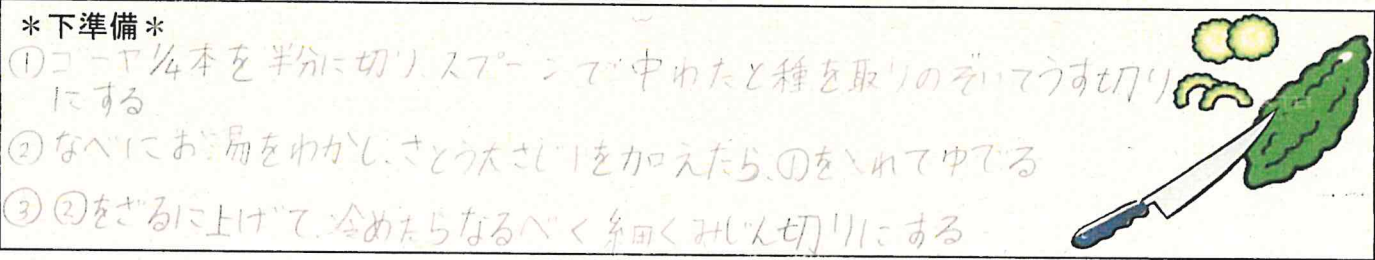 ＊下準備＊
①ゴーヤ1/4本を半分に切り、スプーンで中わたと種を取りのぞいてうす切り
にする
②なべにお湯をわかし、さとう大さじ1を加えたら、①を入れてゆでる
③②をざるに上げて、冷めたらなるべく細くみじん切りにする